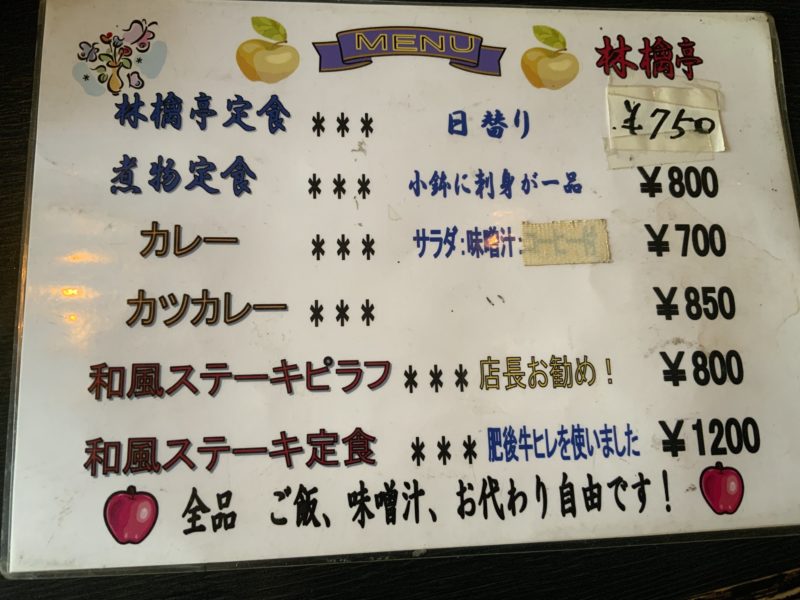 MENU 林檎亭
林檎亭定食 *** 日替り ¥750
煮物定食 *** 小鉢に刺身が一品 ¥800
カレー *** サラダ:味噌汁: ¥700
カツカレー *** ¥850
和風ステーキピラフ *** 店長お勧め! ¥800
和風ステーキ定食 *** 肥後牛ヒレを使いました ¥1200
全品 ご飯、味噌汁、お代わり自由です!